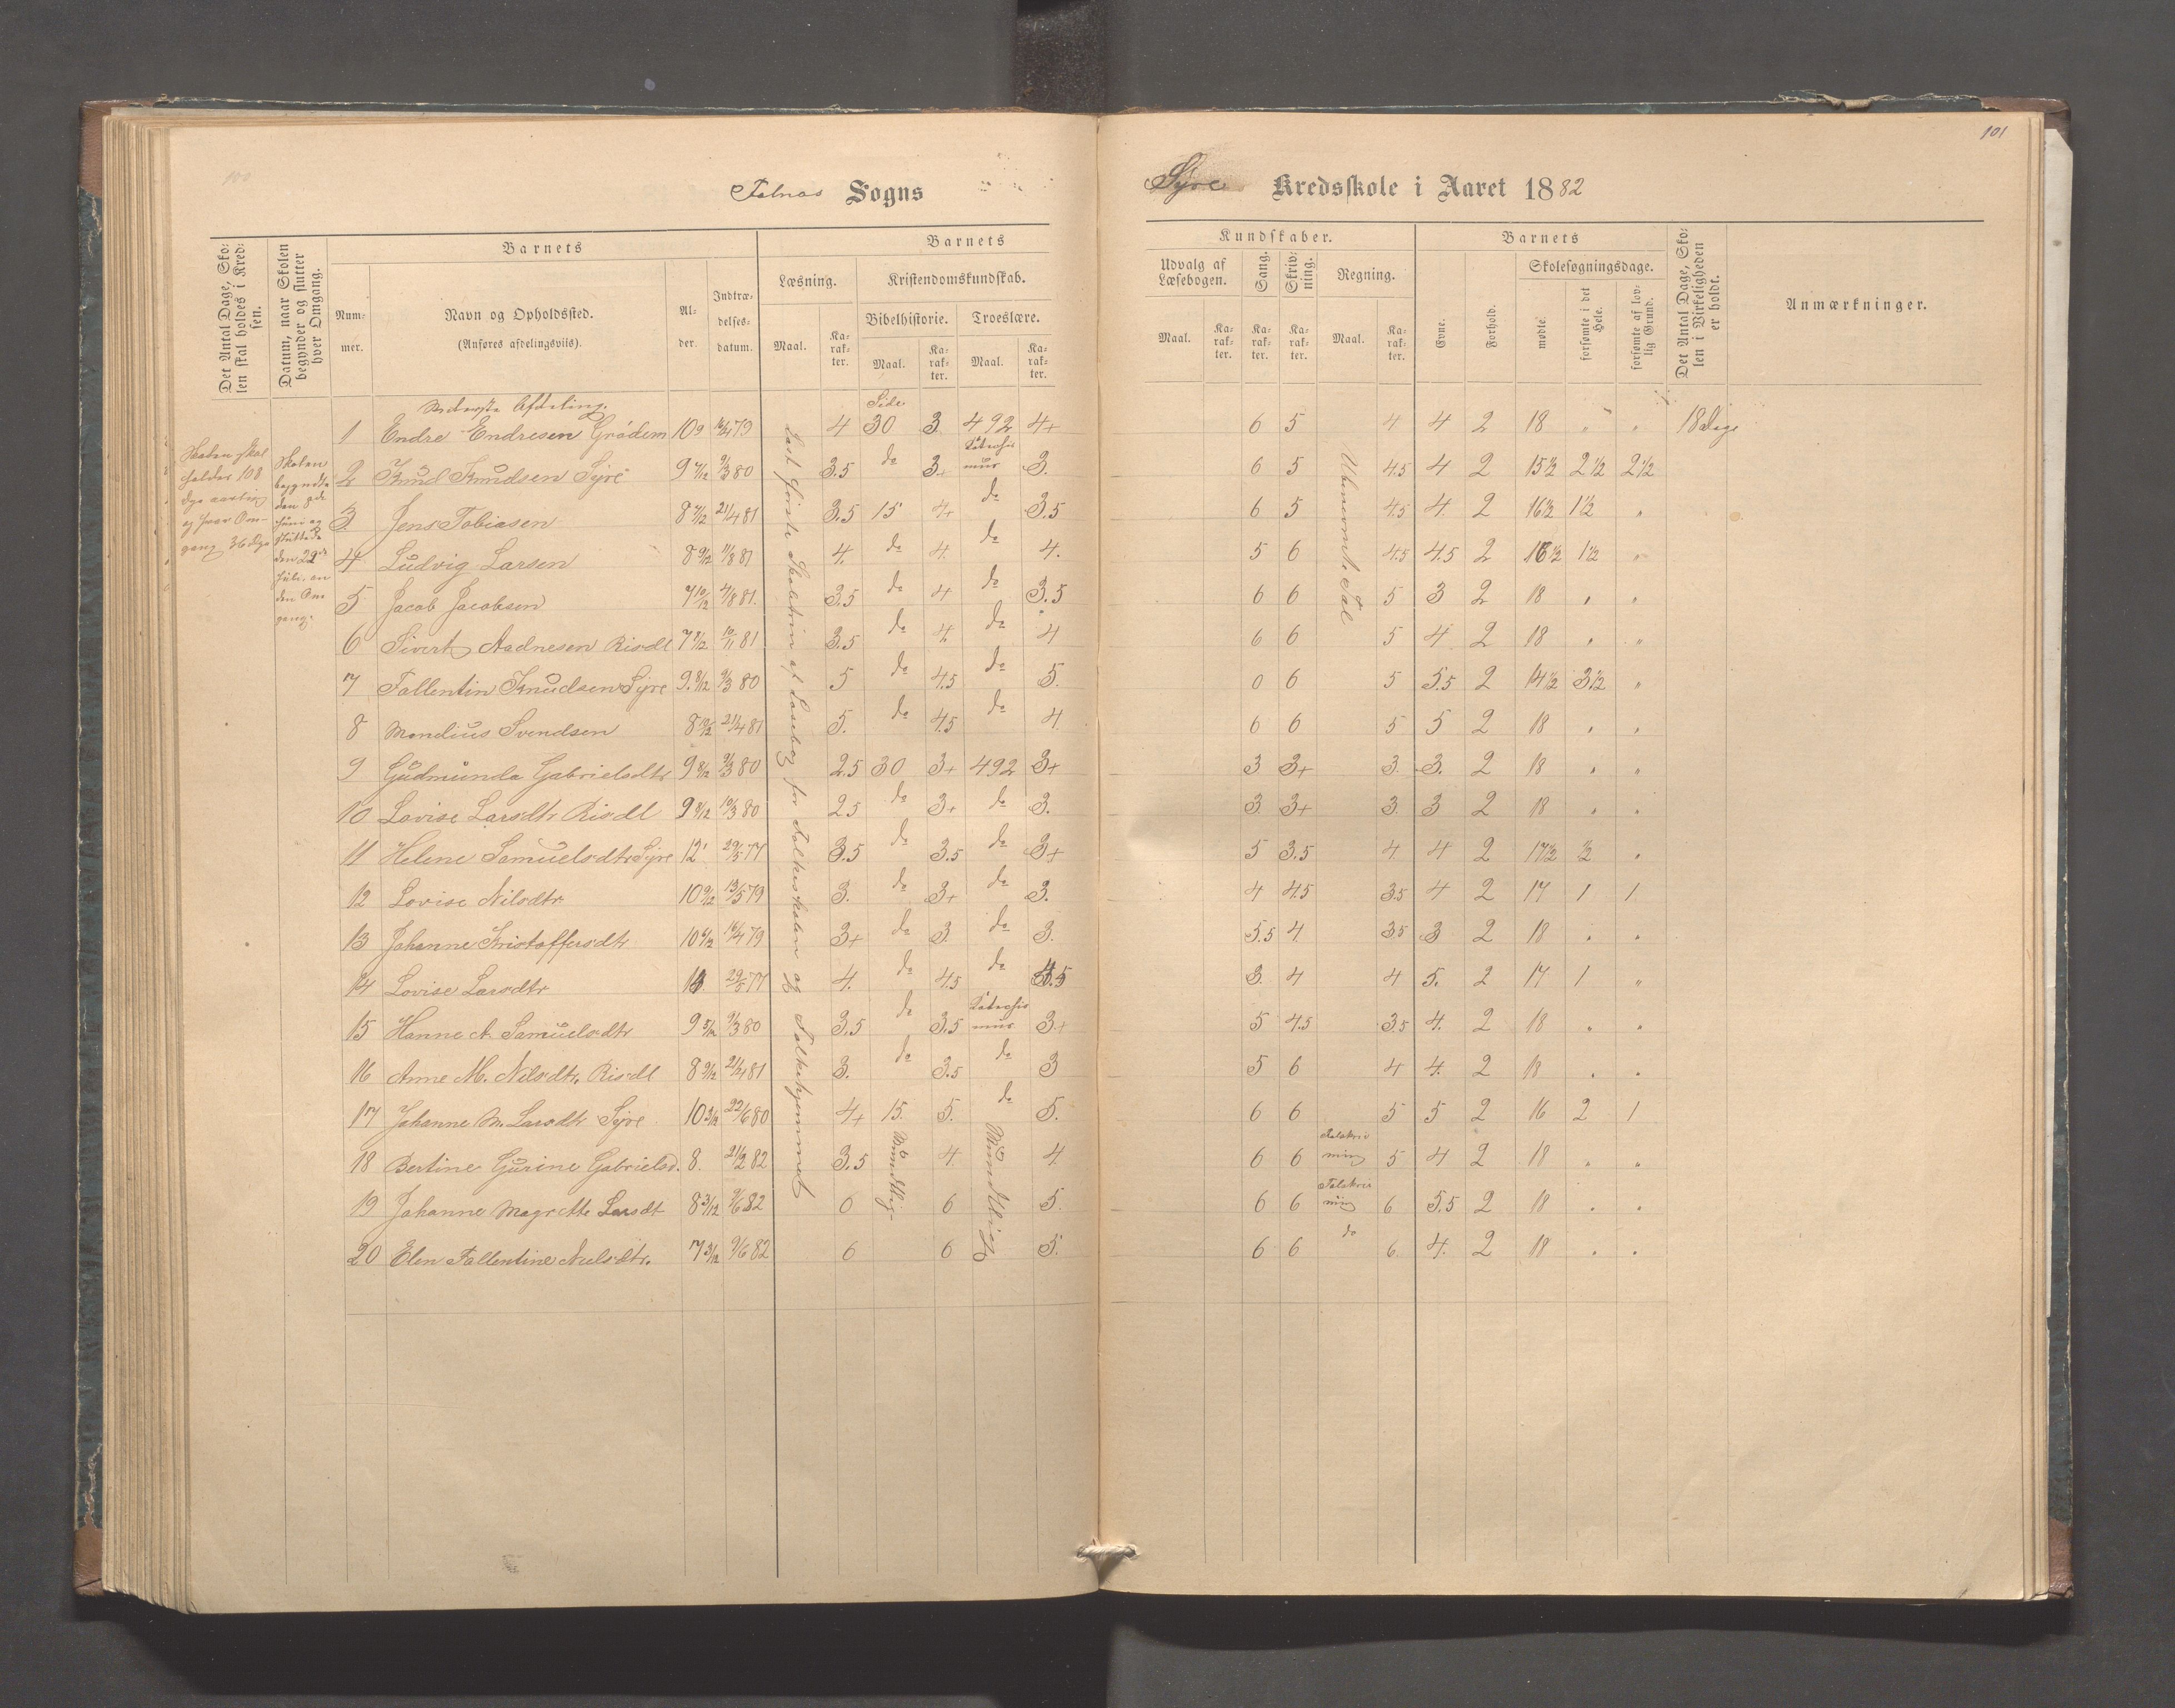 100
101
Falnæs Sogns
Syre Kredsskole i Aaret 1882
Det Antal Dage, Sko-
len skal holdes i Kred-
sen.
Datum, naar Skolen
begynder og slutter
hver Omgang.
Barnets
Num-
mer.
Navn og Opholdssted.
(Anføres afdelingsvis).
Al-
der.
Indtræ-
delses-
datum.
Barnets
Læsning.
Maal.
Ka-
rak-
ter.
Kristendomskundskab.
Bibelhistorie.
Maal.
Ka-
rak-
ter.
Troeslære.
Maal.
Ka-
rak-
ter.
Kundskaber.
Udvalg af
Læsebogen.
Maal.
Ka-
rak-
ter.
Sang.
Ka-
rak-
ter.
Skriv-
ning.
Ka-
rak-
ter.
Regning.
Maal.
Ka-
rak-
ter.
Barnets
Evne.
Forhold.
Skolesøgningsdage.
mødte.
forsømte i det
Hele.
forsømte af lov-
lig Grund.
Det Antal Dage, Sko-
len i Virkeligheden
er holdt.
Anmærkninger.
Nederste Afdeling.
Side
Skolen skal
holdes 108
Dge aarlig
og hver Om-
gang 36 Dge
Skolen
begyndte
den 8de
Juni og
sluttede
den 29de
Juli. an
den Om
gang.
Læst første Skoletrin af Læsebog for Folkeskolen og Folkehjemmet
Ubenævnt Tal
1 Endre Endresen Grødem 10 9 16/4 79 4 30 3 492 4+ 6 5 4 4 2 18 " " 18 Dage
2 Knud Knudsen Syre 9 7/12 9/3 80 3.5 do 3+ Katechis
mus 3. 6 5 4.5 4 2 15½ 2½ 2½
3 Jens Tobiasen 8 7/12 21/4 81 3.5 15 4+ do 3.5 6 5 4.5 4 2 16½ 1½ "
4 Ludvig Larsen 8 9/12 11/8 81 4. do 4. do 4. 5 6 4.5 4.5 2 16½ 1½ "
5 Jacob Jacobsen 7 10/12 4/8 81. 3.5 do 4 do 3.5 6 6 5 3 2 18 " "
6 Sivert Aadnesen Risdl 7 8/12 10/11 81 3.5 do 4. do 4 6 6 5 4 2 18 " "
7 Fallentin Knudsen Syre 9. 8/12 9/3 80 5 do 4.5 do 5. 0 6 5 5.5 2 14½ 3½ "
8 Mondius Svendsen 8 10/12 21/4 81 5. do 4.5 do 4. 6 6 5 5 2 18 " "
9 Gudmunda Gabrielsdtr 9 8/12 9/3 80 2.5 30 3+ 492 3+ 3 3+ 3. 3. 2 18 " "
10 Lovise Larsdtr Risdl 9 9/12 10/3 80 2.5 do 3+ do 3. 3 3+ 3. 3 2 18 " "
11 Helene Samuelsdtr Syre 12 29/5 77 3.5 do 3.5 do 3+ 5 3.5 4 4 2 17½ ½ "
12 Lovise Nilsdtr 10 9/12 13/5 79 3. do 3+ do 3. 4 4.5 3.5 4 2 17 1 1
13 Johanne Kristoffersdtr 10 6/12 16/4 79 3+ do 3. do 3. 5.5 4 3.5 3 2 18 " "
14 Lovise Larsdtr 29/5 77 4. do 4.5 do 3. 4 4 5. 2 17 1 "
15 Hanne A. Samuelsdtr 9 5/12 9/3 80 3.5 do 3.5 Katechis
mus 3+ 5 4.5 3.5 4. 2 18 " "
16 Anne M. Nilsdtr. Risdl 8 9/12 21/4 81 3. do 3.5 do 3 5 6 4 4. 2 18 " "
17 Johanne M. Larsdtr Syre 10 3/12 22/6 80 4+ 15. 5. do 5. 6 6 5 5 2 16 2 1
18 Bertine Gurine Gabrielsd. 8. 21/2 82 3.5 Mundtlig 4. Mundtligt 4. 6 6 Talskriv
ning 5 4 2 18 " "
19 Johanne Magrethe Larsdt 8 3/12 9/6 82 0 6 5. 6 6 Talskriv
ning 6 5.5 2 18 " "
20 Elen Fallentine Nielsdtr. 7 3/12 9/6 82 6 6 5. 6 6 do 6. 4. 2 18 " "